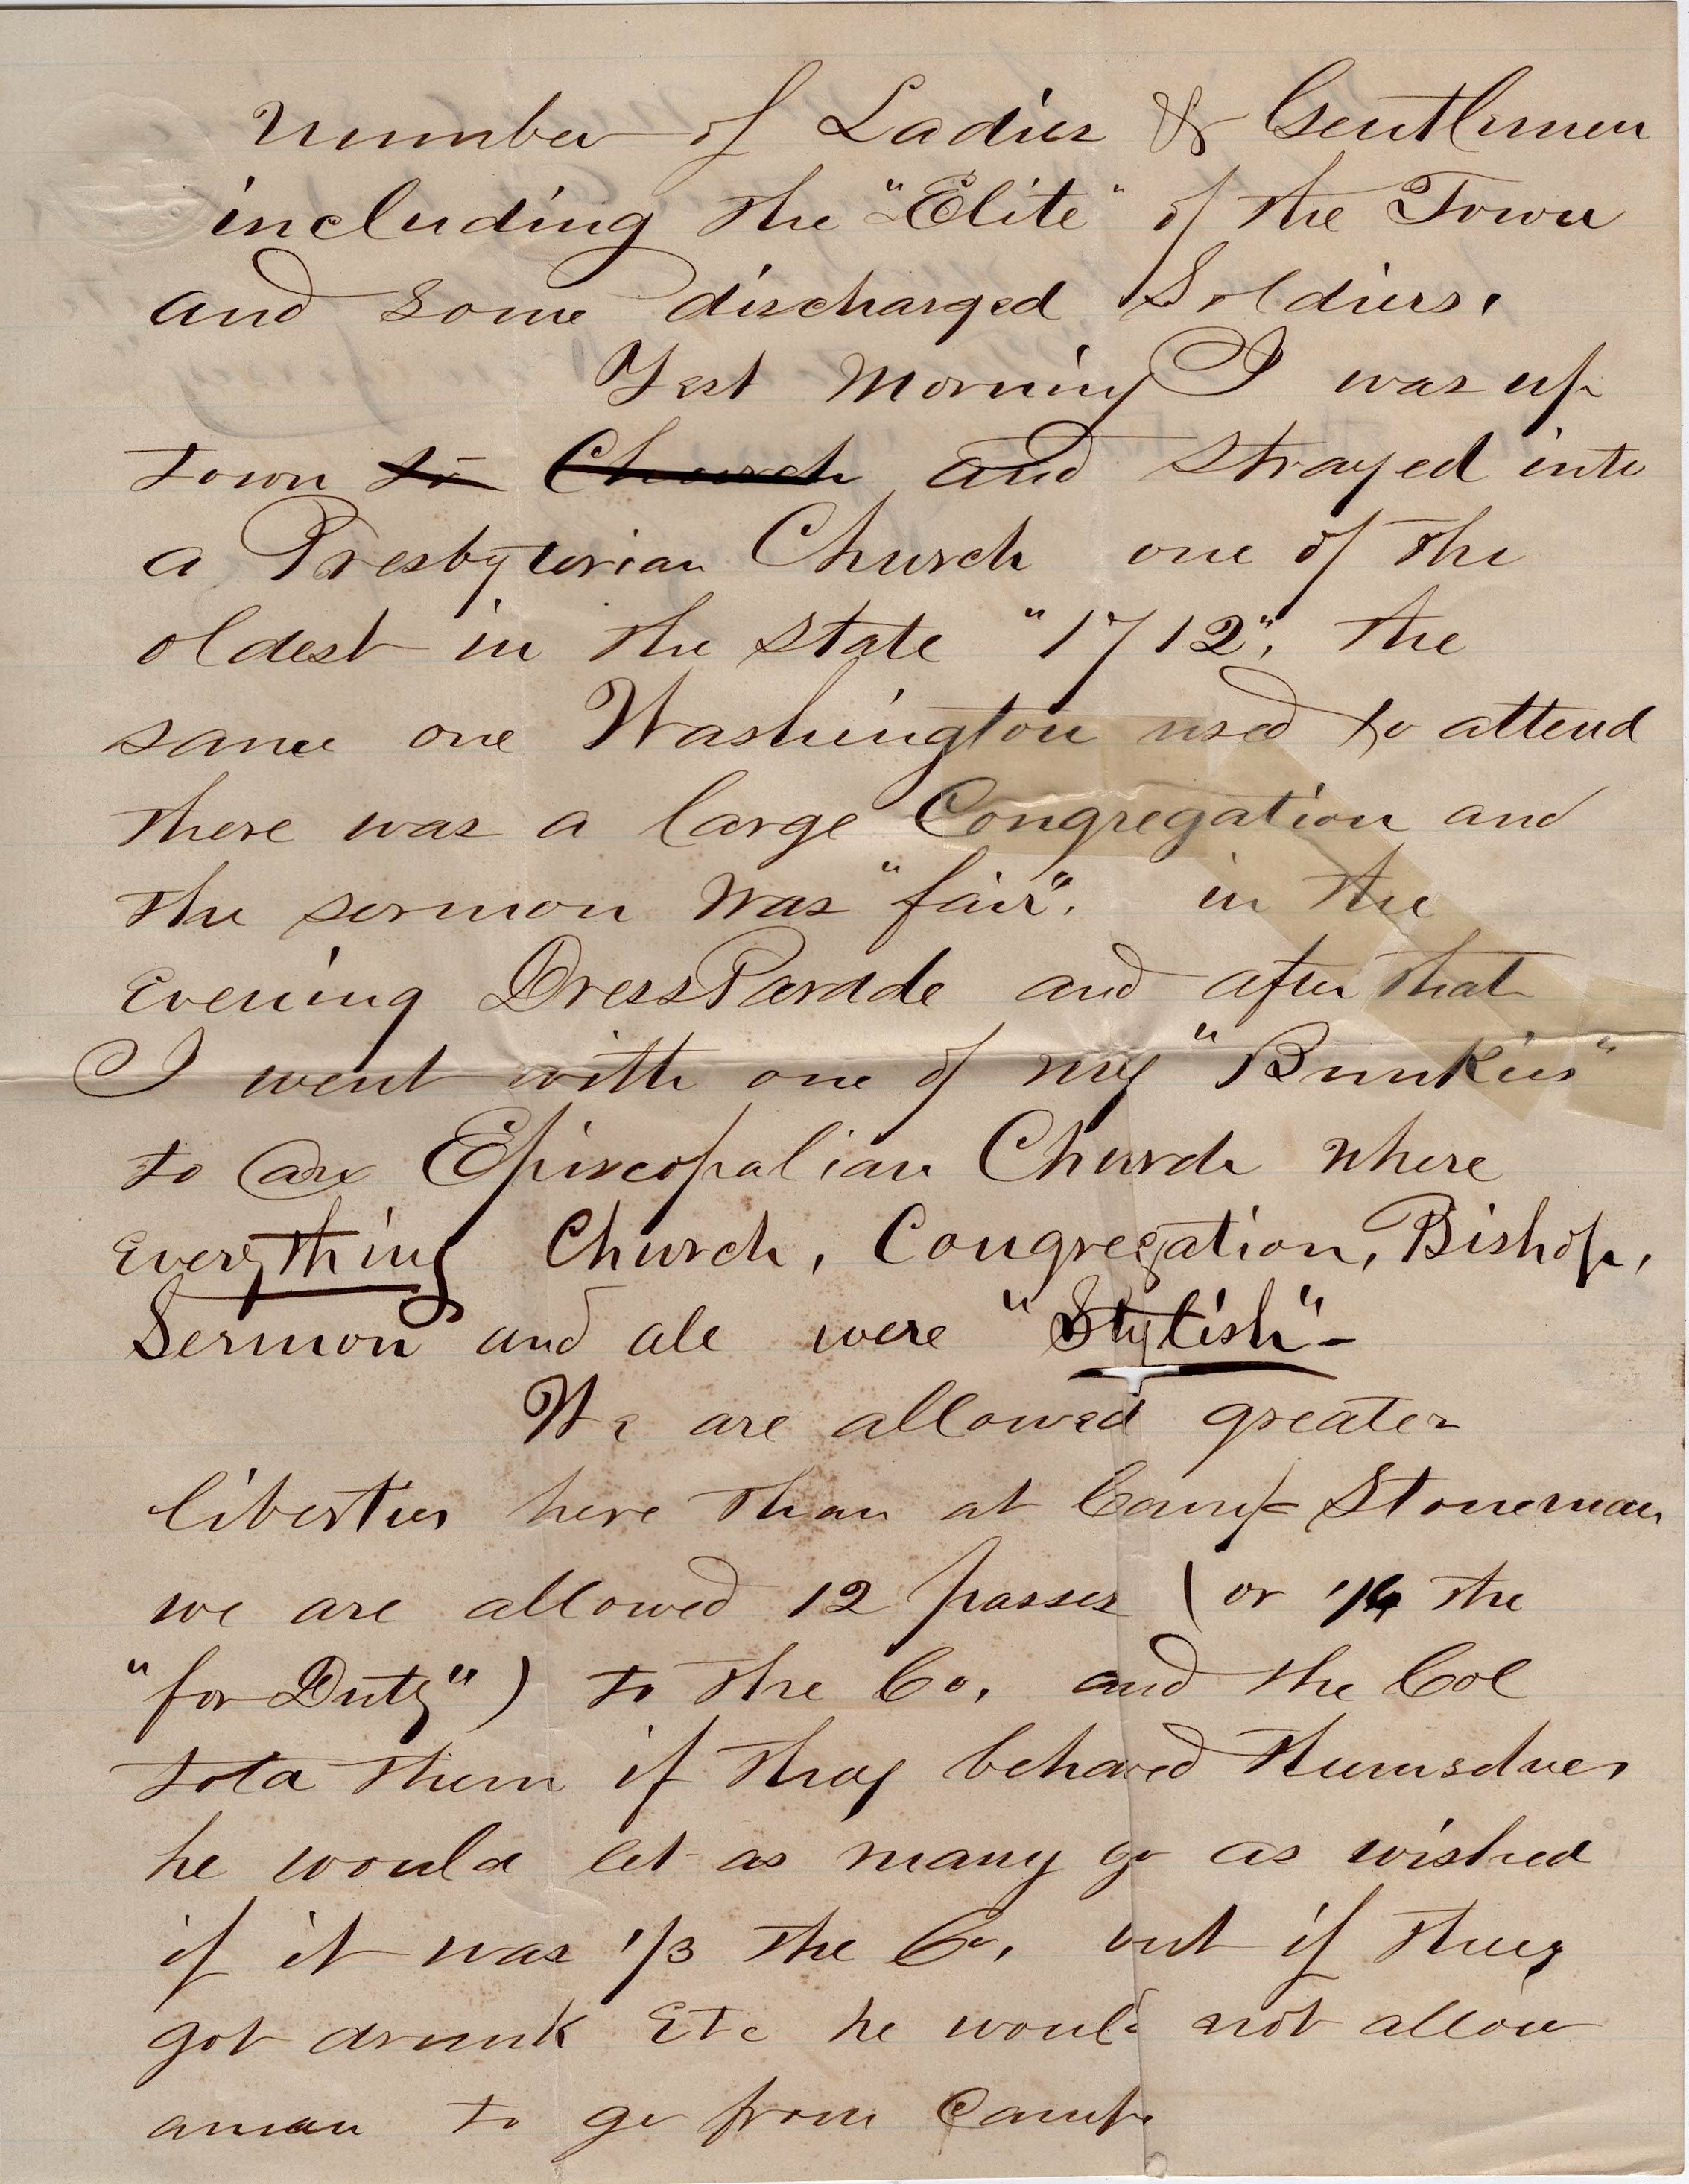 Number of Ladies & Gentlemen
including the "Elite" of the Town
and some discharged Soldiers.
Yest Morning I was up
town to Church and strayed into
a Presbyterian Church one of the
oldest in the state "1712", the
same one Washington used to attend
there was a large Congregation and
the sermon was "fair". in the
Evening Dress Parade and after that
I went with one of my "Bunkies"
to an Episcopalian Church where
Everything Church, Congregation, Bishop,
Sermon and all were "Stylish" -
We are allowed greater
liberties here than at Camp Stoneman
we are allowed 12 passes (or 1/4 the
"for Duty") to the Co. and the Col
told them if they behaved themselves
he would let as many go as wished
if it was 1/3 the Co. but if they
got drunk Etc he would not allow
a man to go from Camp.